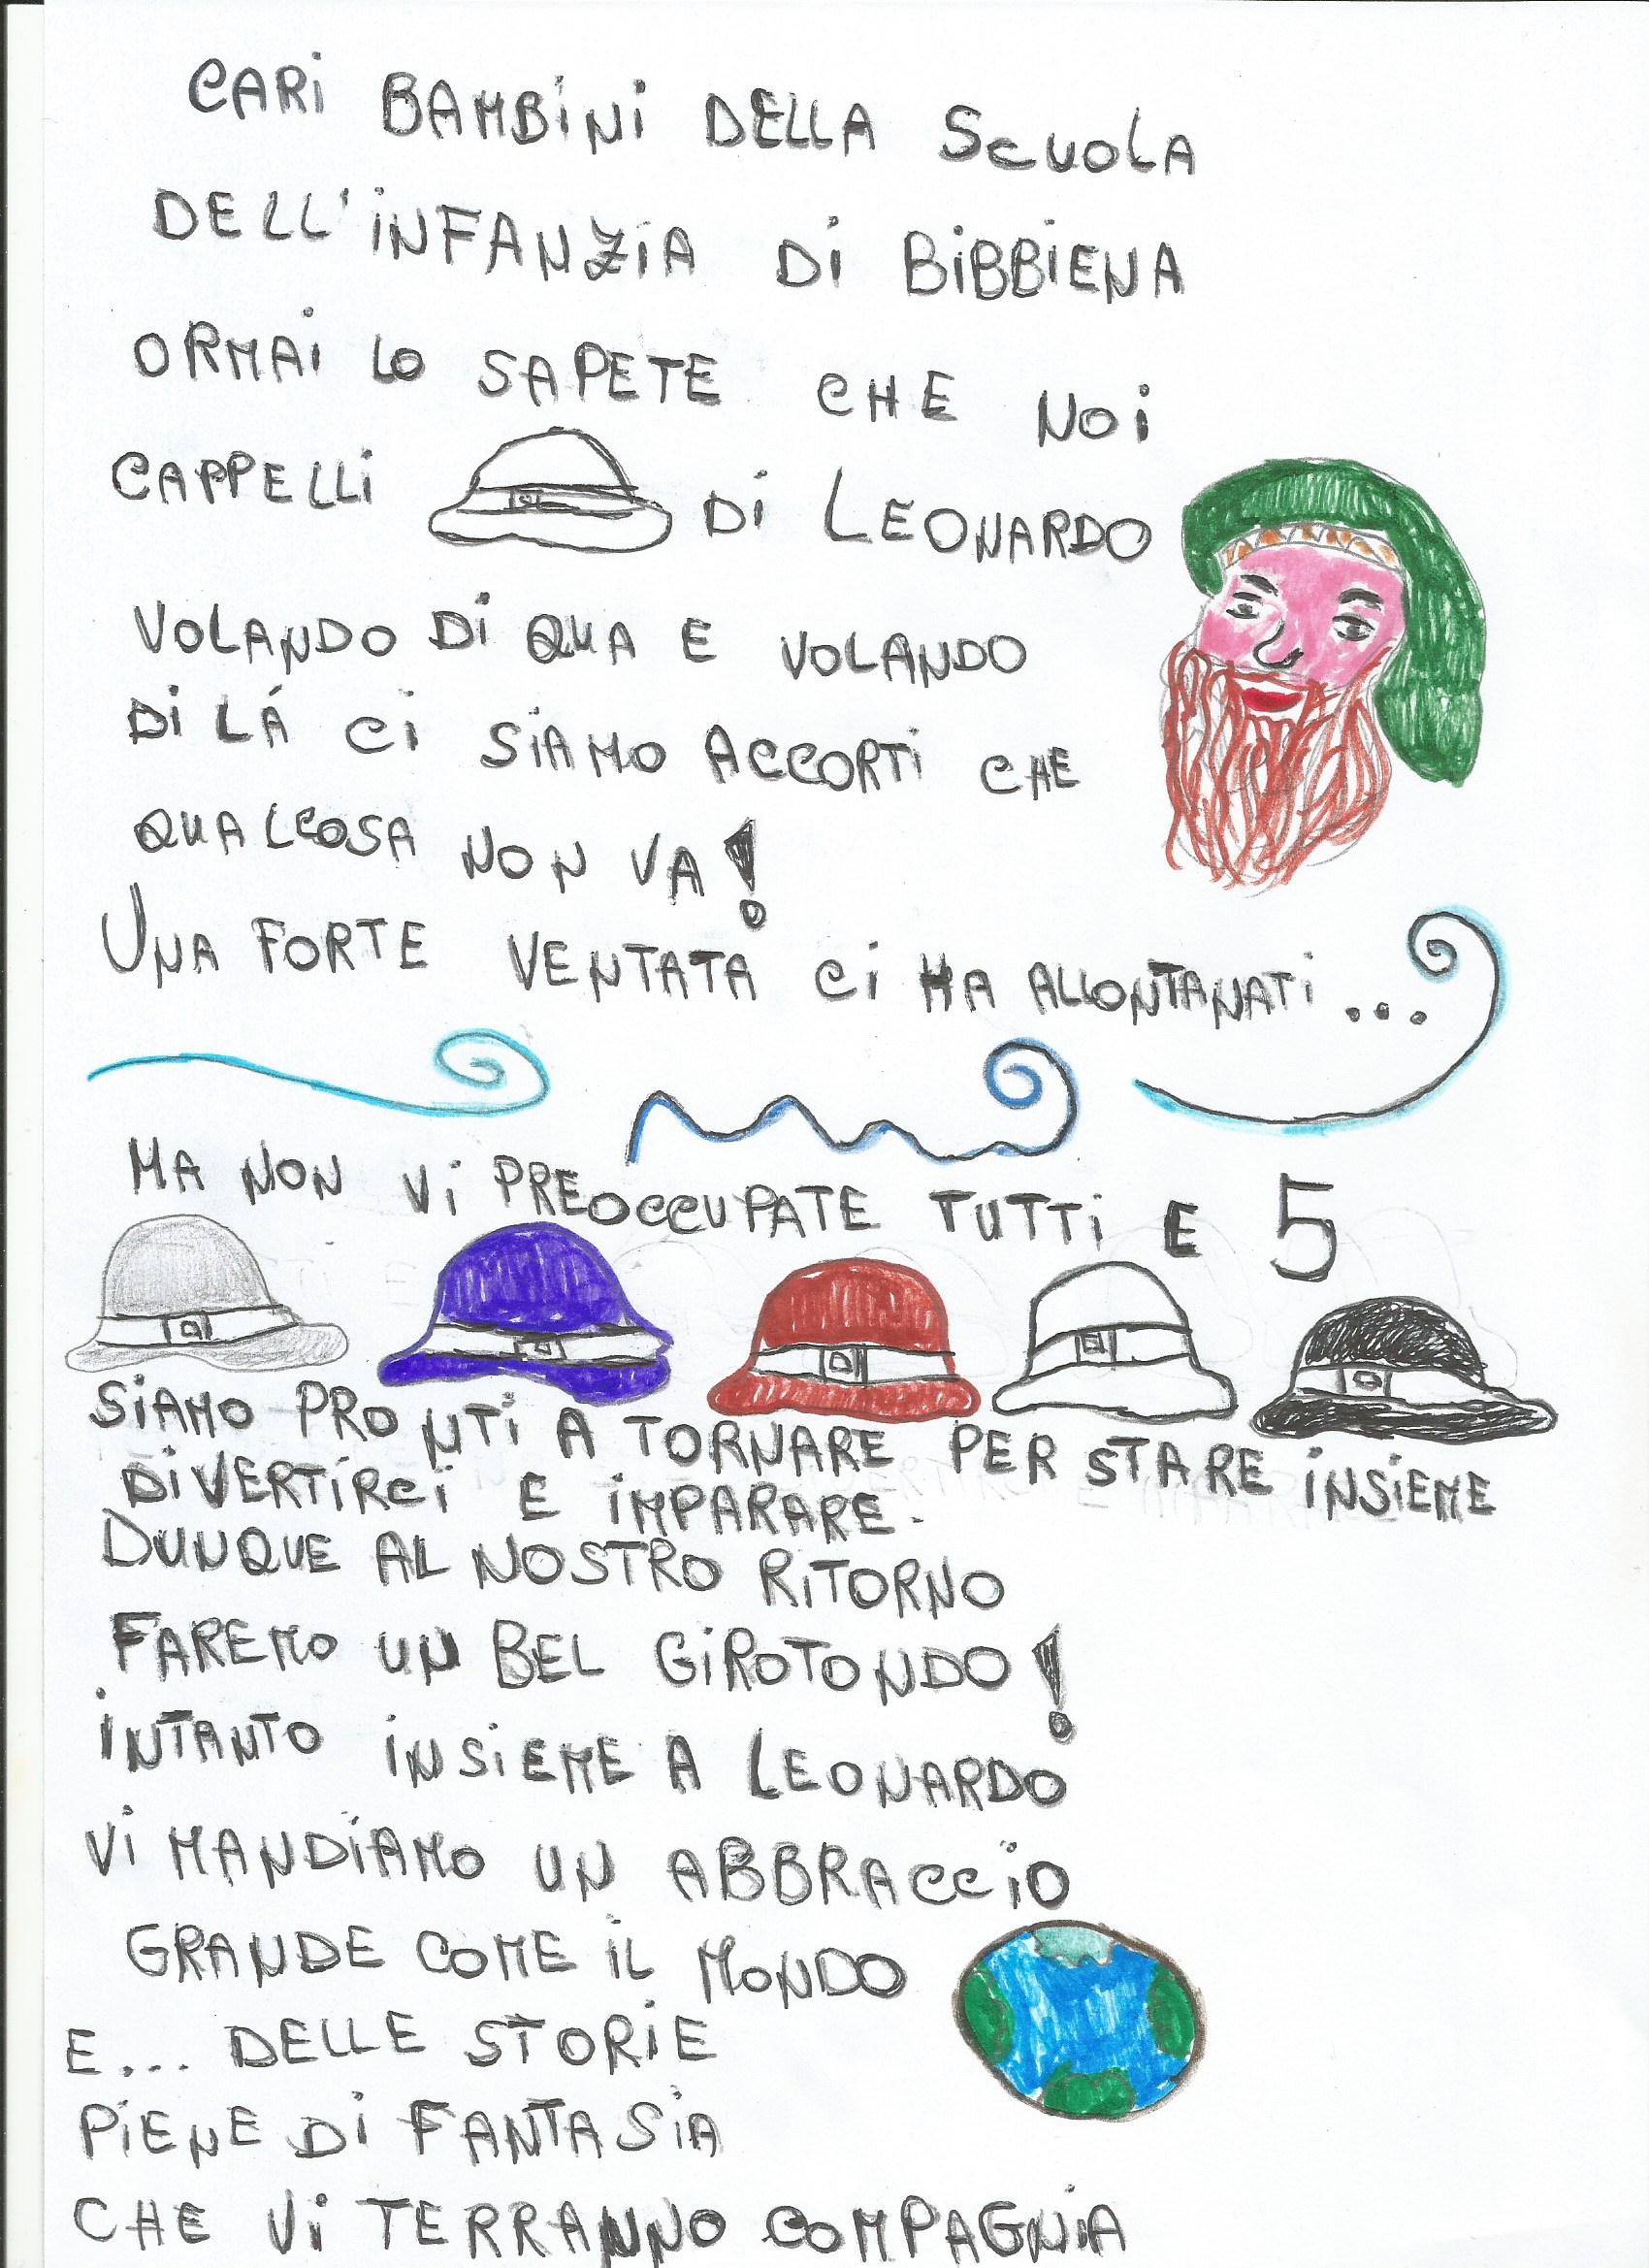 CARI BAMBINI DELLA SCUOLA
DELL'INFANZIA DI BIBBIENA
ORMAI LO SAPETE CHE NOI
CAPPELLI DI LEONARDO
VOLANDO DI QUA E VOLANDO
DI LÁ CI SIAMO ACCORTI CHE
QUALCOSA NON VA!
UNA FORTE VENTATA CI HA ALLONTANATI...
MA NON VI PREOCCUPATE TUTTI E 5
SIAMO PRONTI A TORNARE PER STARE INSIEME
DIVERTIRCI E IMPARARE.
DUNQUE AL NOSTRO RITORNO
FAREMO UN BEL GIROTONDO!
INTANTO INSIEME A LEONARDO
VI MANDIAMO UN ABBRACCIO
GRANDE COME IL MONDO
E... DELLE STORIE
PIENE DI FANTASIA
CHE VI TERRANNO COMPAGNIA